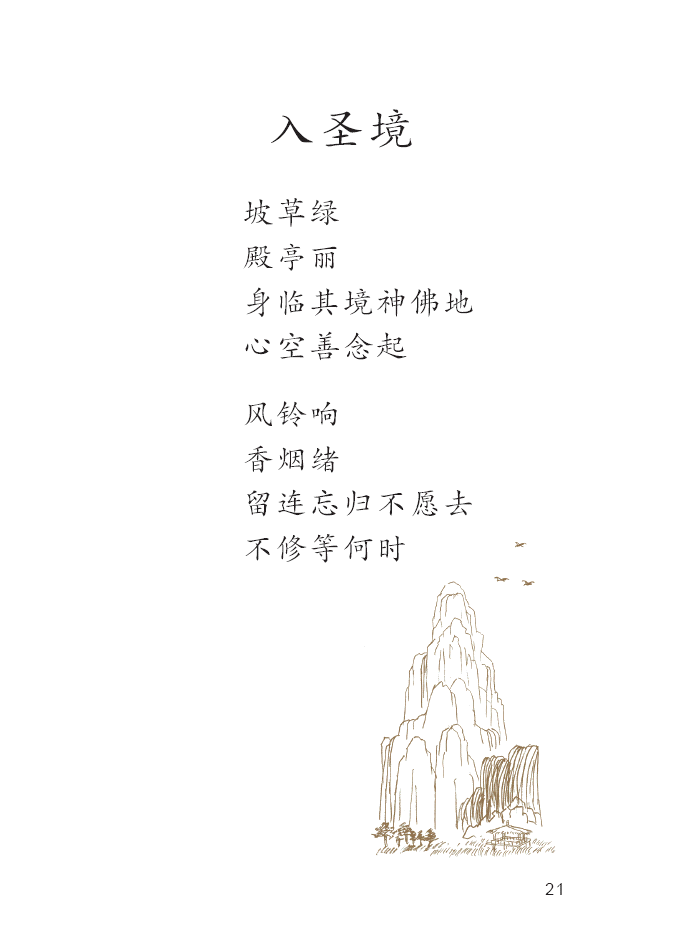 入圣境
坡草绿
殿亭丽
身临其境神佛地
心空善念起
风铃响
香烟绪
留连忘归不愿去
不修等何时
21